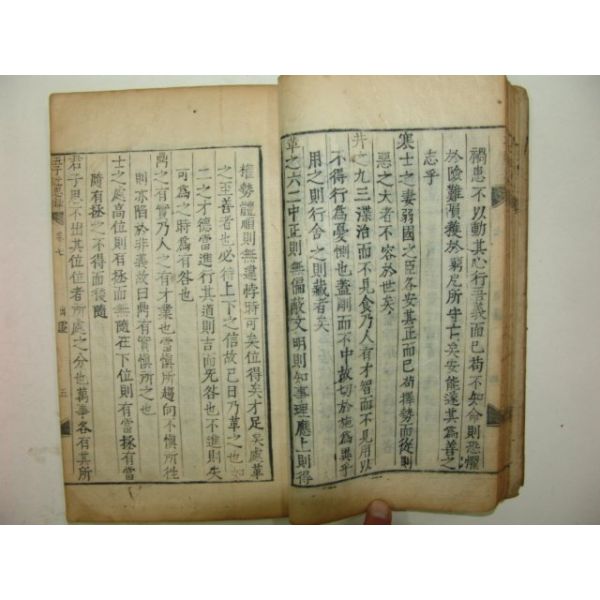 禍患不以動其心行吾義而已苟不知命則恐懼
於險難隕穫於窮戹所守亡矣安能遂其為善之
志乎
寒士之妻弱國之臣各安其正而已苟擇勢而從則
惡之大者不容於世矣
井之九三渫治而不見食乃人有才智而不見用以
不得行為憂惻也蓋剛而不中故切於施為異乎
用之則行舍之則藏者矣
革之六二中正則無偏蔽文明則知事理應上則得
權勢體順則無違悖時可矣位得矣才足矣處革
之至善者也必待上下之信故已日乃革之也如
二之才德當進行其道則吉而无咎也不進則失
可為之時為有咎也
鼎之有實乃人之有才業也當慎所趨向不慎所往
則亦陷於非義故曰鼎有實慎所之也
士之處高位則有拯而無隨在下位則有當拯有當
隨有拯之不得而後隨
君子思不出其位位者所處之分也萬事各有其所
卷七 出處 五